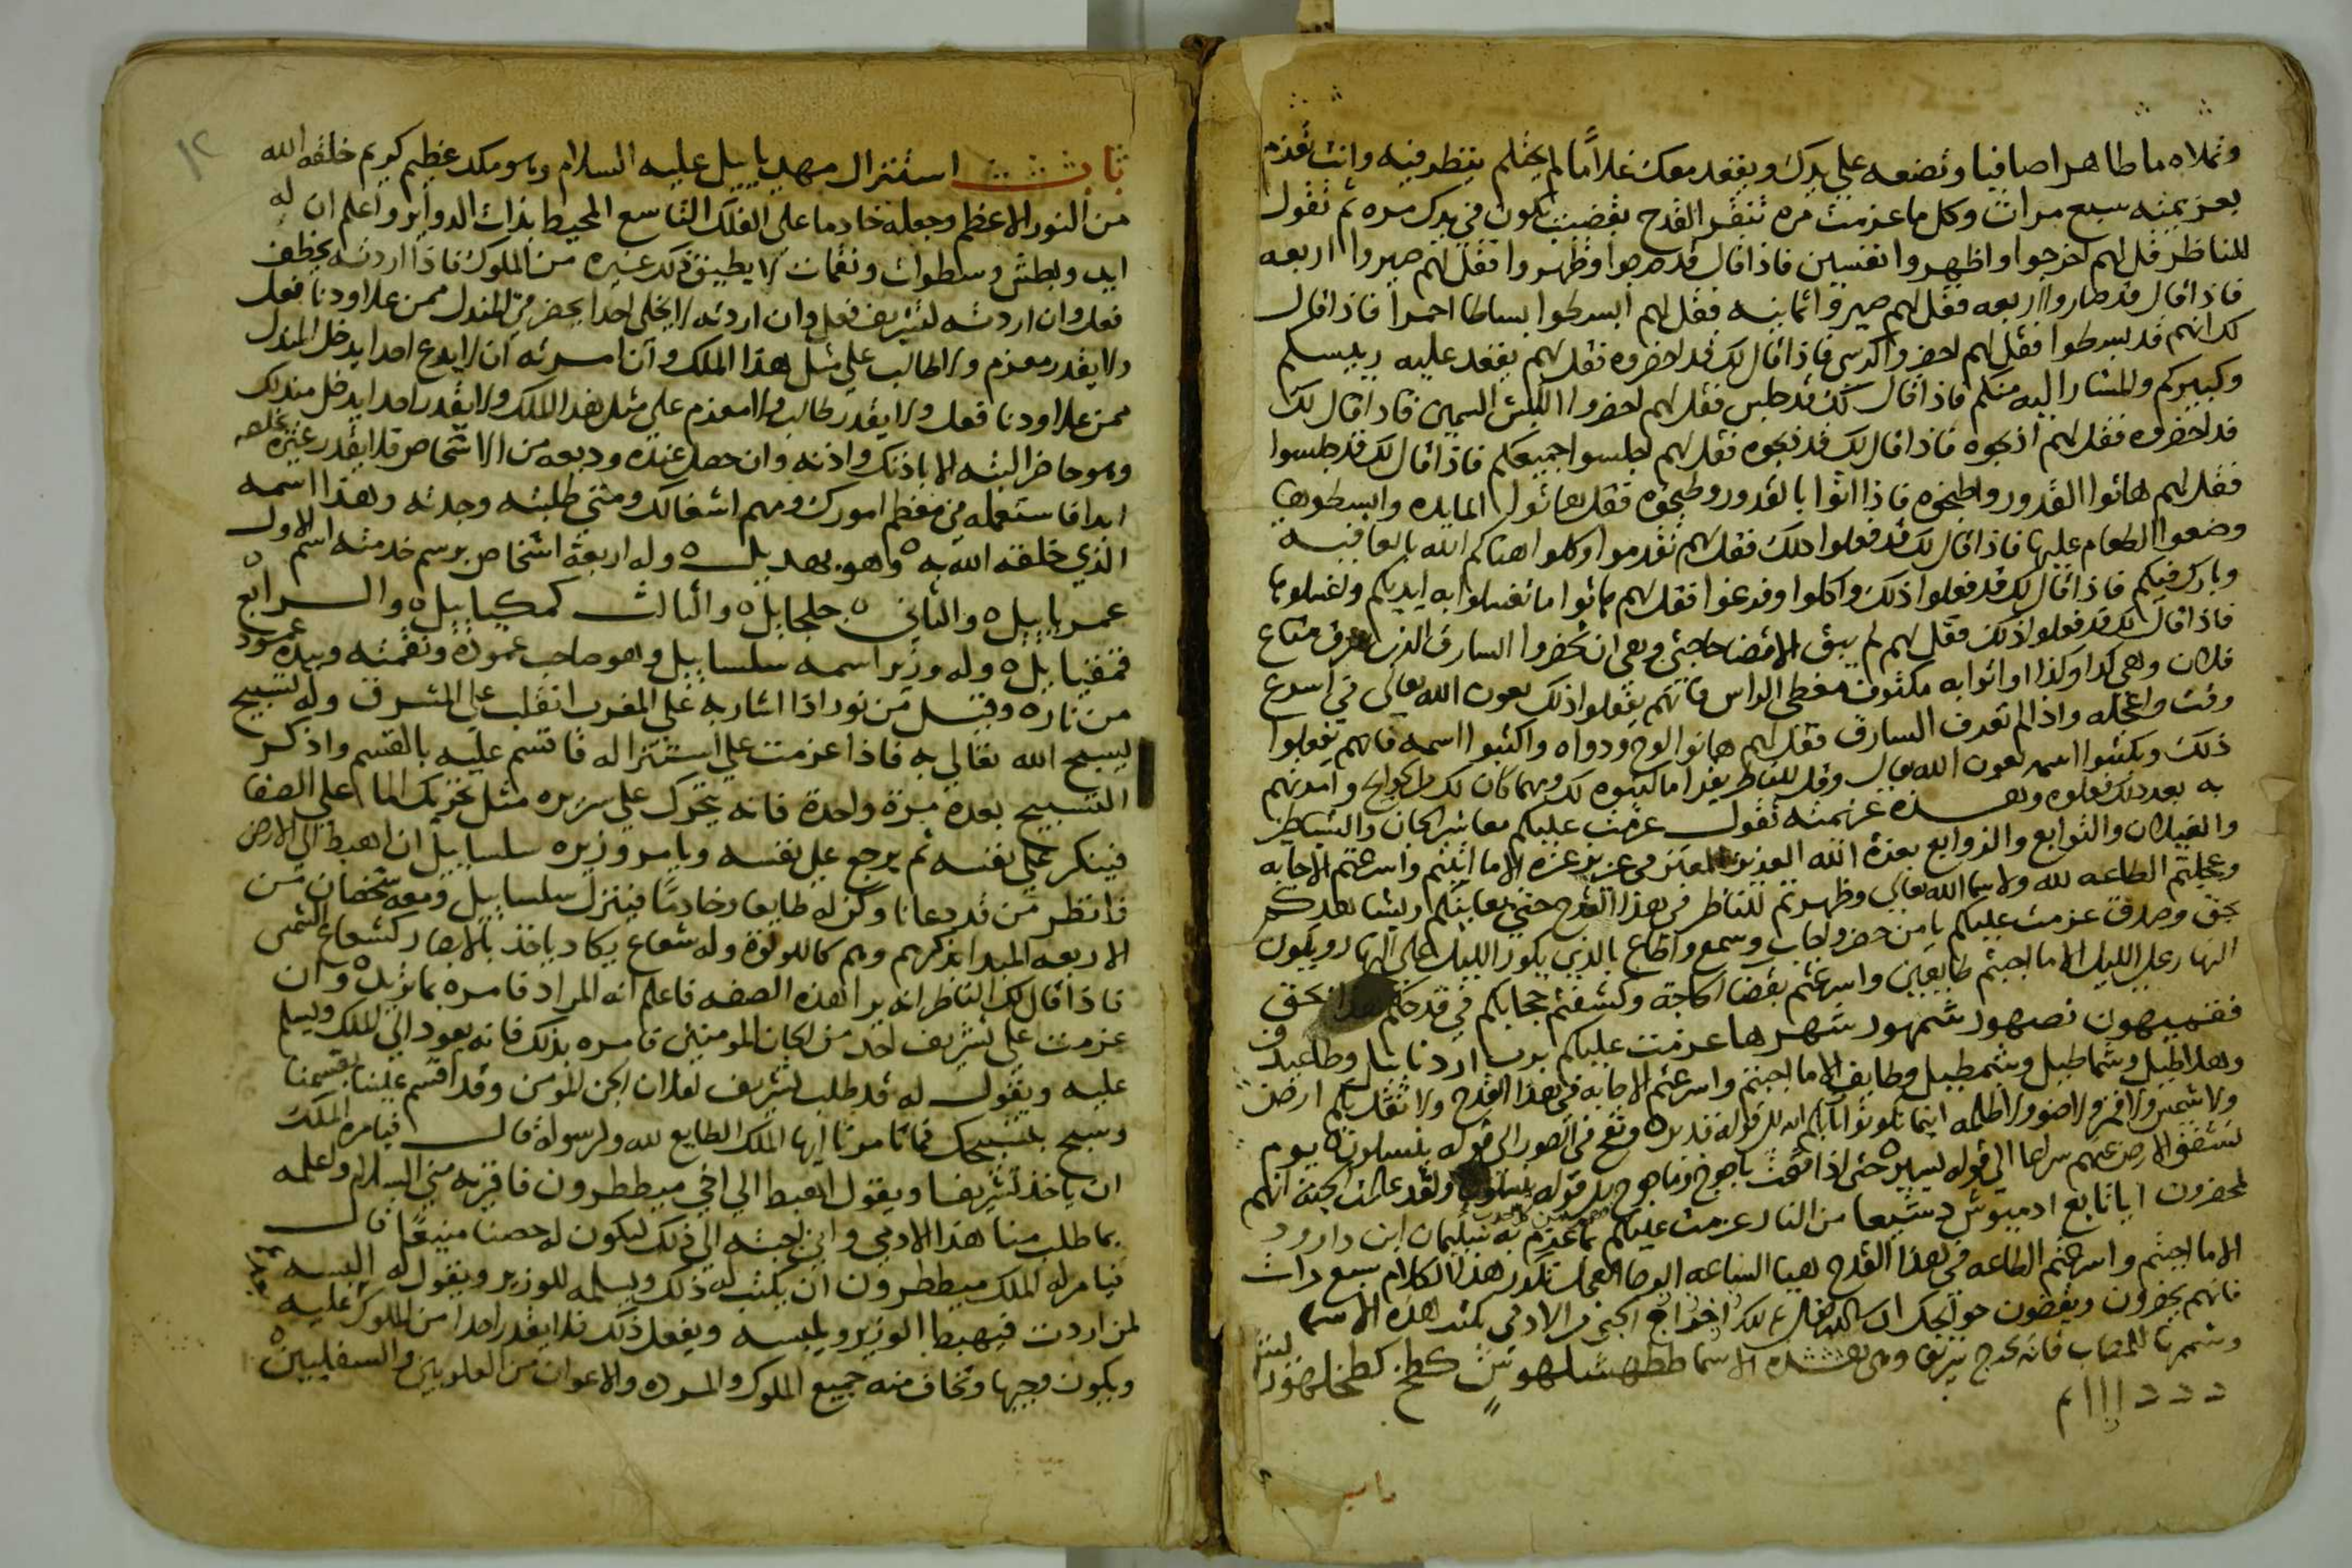 وتملاه ما طاهرا صافيا وتضعه علي يدك ويقعد معك غلاما لم يحتلم ينظر فيه وانت تعزم
بعزيمته سبع مرات وكل ما عزمت مره تنقر القدح بقضيب يكون في يدك مره ثم تقول
للناظر قل لهم اخرجوا واظهروا نفسين فاذا قال قد خرجوا وظهروا فقل لهم صيروا اربعه
فاذا قال قد صاروا اربعه فقل لهم صيروا ثمانيه فقل لهم ابسطوا بساطا احمرا فاذا قال
لك انهم قد بسطوا فقل لهم احضروا كرسي فاذا قال لك قد احضروه فقل لهم يقعد عليه رييسكم
وكبيركم والمشار اليه منكم فاذا قال لك قد جلس فقل لهم احضروا الكبش السمين فاذا قال لك
قد احضروه فقل لهم اذبحوه فاذا قال لك قد ذبحوه فقل لهم اجلسوا جميعكم فاذا قال لك قد جلسوا
فقل لهم هاتوا القدور واطبخوه فاذا اتوا بالقدور وطبخوه فقل هاتوا المايده وابسطوها
وضعوا الطعام عليها فاذا قال لك قد فعلوا ذلك فقل لهم تقدموا وكلوا هناكم الله بالعافيه
وبارك فيكم فاذا قال لك قد فعلوا ذلك واكلوا وفرغوا فقل لهم هاتوا ما تغسلوا به ايديكم واغسلوها
فاذا قال لك قد فعلوا ذلك فقل لهم لم يبق الا قضا حاجتي وهي ان تحضروا السارق الذي سرق متاع
فلان وهي كدا وكذا واتوا به مكتوف مغطي الراس فانهم يفعلوا ذلك بعون الله تعالي في اسرع
وقت واعجله واذا لم تعرف السارق فقل لهم هاتوا لوح ودواه واكتبوا اسمه فانهم يفعلوا
ذلك ويكتبوا اسمه بعون الله تعالي وقل للناظر يقرا ما كتبوه لك ومهما كان لك من الحوايج وامرتهم
به بعد ذلك فعلوه وهذه عزيمته تقول عزمت عليكم معاشر الجان والشياطين
والغيلان والتوابع والزوابع بعزة الله العزيز المعتز في عزيز عزه الا ما اتيتم واسرعتم الاجابه
وعجلتم الطاعه لله ولاسما الله تعالي وظهرتم للناظر في هذا القدح حتي يعاينكم ويشاهدكم
بحق وصدق عزمت عليكم يا من حضر واجاب وسمع واطاع بالذي يكور الليل علي النهار ويكور
النهار علي الليل الا ما اجبتم طايعين واسرعتم بقضا الحاجة وكشفتم حجابكم في قدحكم هذا بحق
ففهيهون نصهور شمهور شهرها عزمت عليكم برب اردنا
وهداطيل وشماطيل وشمطيل وطايف الا ما اجبتم واسرعتم الاجابه في هذا القدح ولا تقلكم ارض
ولا شمس ولا قمر ولا ضو ولا ظلمه اينما تكونوا الي قوله قدير ونفخ في الصور الي قوله ينسلون يوم
تشقق الارض عنهم سراعا الي قوله يسير حتي اذا فتحت ياجوج وماجوج الي قوله ينسلون ولقد علمت الجنه انهم
لمحضرون من النار عزمت عليكم بما عزم به سليمان ابن داوود
الا ما اجبتم واسرعتم الطاعه في هذا القدح هيا الساعه الوحا العجل تكرر هذا الكلام سبع مرات
فانهم يحضرون ويقضون حوايجك ان شا الله تعالي لاخراج الجني من الادمي تكتب هذه الاسما
وشمرها للمصاب فانه يخرج سريعا وهي هذه الاسما
ددد ااا م
باب
باب استنزال مهديابيل عليه السلام وهو ملك عظيم كريم خلقه الله
من النور الاعظم وجعله خادما علي الفلك التاسع المحيط بذات الدواير واعلم ان له
ايد وبطش وسطوات ونقمات لا يطيق ذلك غيره من الملوك فاذا اردته يخطف
فعل وان اردته لتشريف فعل وان اردته لا يخلي احدا يحضر في المندل ممن علا او دنا فعل
ولا يقدر معزم ولا طالب علي مثل هذا الملك وان امرته ان لا يدع احدا يدخل المندل
ممن علا او دنا فعل ولا يقدر طالب ولا معزم علي مثل هذا الملك ولا يقدر احدا يدخل مندلك
وهو حاضر البته الا باذنك واذنه وان حصل عنده وديعه من الاشخاص فلا يقدر غيره يخلصه
ابدا فاستعمله في معظم امورك ومهم اشغالك ومتي طلبته وجدته وهذا اسمه
الذي خلقه الله به وهو مهديل وله اربعة اشخاص برسم خدمته اسم الاول
عمريابيل والثاني جلجابل والثالث كمكيابيل والرابع
قمقيابيل وله وزير اسمه سلسابيل وهو صاحب عموده ونقمته وبيده عمود
من نار وقبس من نور اذا اشار به علي المغرب انقلب علي المشرق وله تسبيح
يسبح الله تعالي به فاذا عزمت علي استنزاله فاقسم عليه بالقسم واذكر
التسبيح بعده مرة واحدة فانه يتحرك علي سريره مثل تحريك الما علي الصفا
فينكر علي نفسه ثم يرجع علي نفسه ويامر وزيره سلسابيل ان اهبط الي الارض
فانظر من قد دعانا وكن له طايعا وخادما فينزل سلسابيل ومعه شخصان من
الاربعه المبدا بذكرهم وهم كاللولوة وله شعاع يكاد ياخذ بالابصار كشعاع الشمس
فاذا قال لك الناظر انه يرا هذه الصفه فاعلم انه المراد فامره بما تريد وان
عزمت علي تشريف احد من الجان المومنين فامره بذلك فانه يعود الي الملك ويسلم
عليه ويقول له قد طلب تشريف لفلان الجن المومن وقد اقسم علينا بقسمنا
وسبح بتسبيحك فما تامرنا ايها الملك الطايع لله ولرسوله قال فيامره الملك
ان ياخذ تشريفا ويقول اهبط الي اخي ميططرون فاقريه مني السلام واعلمه
بما طلب منا هذا الادمي واني اجبته الي ذلك ليكون له حصنا منيعا قال
فيامر له الملك ميططرون ان يكتب له ذلك ويسلمه للوزير ويقول له البسه
لمن اردت فيهبط الوزير ويلبسه ويفعل ذلك فلا يقدر احدا من الملوك عليه
ويكون وجيها وتخاف منه جميع الملوك والمرده والاعوان من العلويين والسفليين